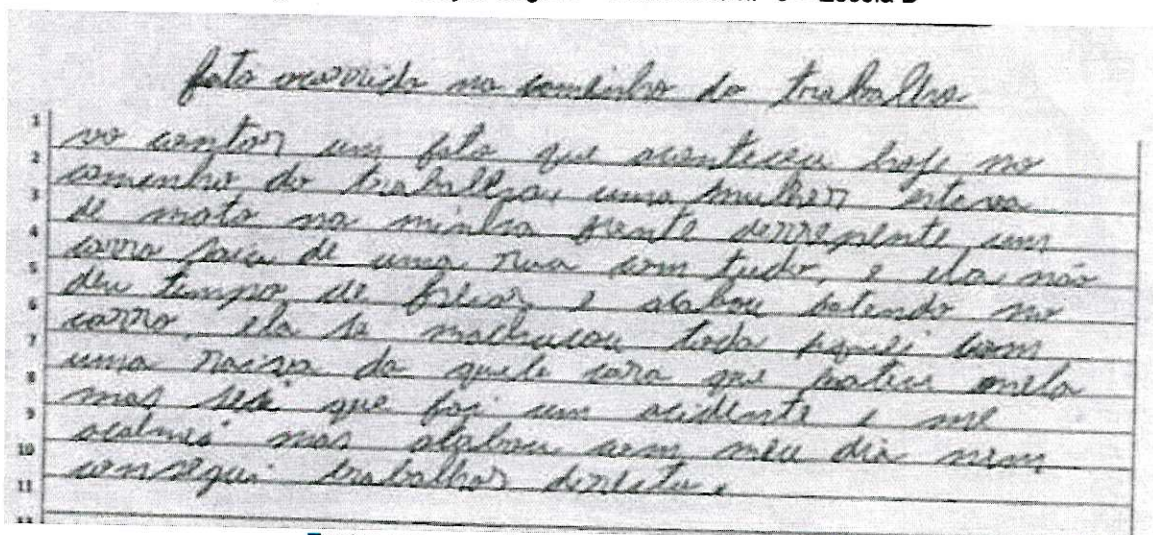 Escola B
fato ocorrido no caminho do trabalho
1
2
3
4
5
6
7
8
9
10
11
vo contor um fato que aconteceu hoje no
caminho do trabalho, uma mulher estava
de moto na minha frente derrepente um
carro saiu de uma rua com tudo, e ela não
deu tempo de frear e acabou batendo no
carro, ela se machucou toda fiquei com
uma raiva da quele cara que bateu nela
mas sei que foi um acidente e me
acalmei mas acabou com meu dia nem
consegui trabalhar